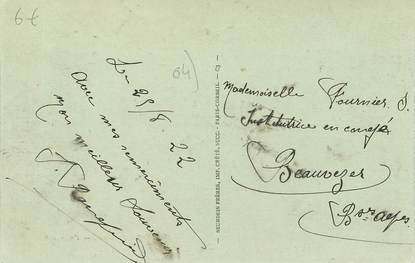 6€
04)
Le 25/8 22
Avec mes remerciements
mon meilleur souvenir
NEURDEIN FRÈRES, IMP. CRÉTÉ, SUCC. - PARIS-CORBEIL - C3 -
Mademoiselle Fournier J.
Institutrice en congé
Beauvezer
Bses alpes